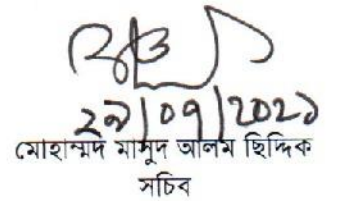 ২৯/০৭/২০২১
মোহাম্মদ মাসুদ আলম ছিদ্দিক
সচিব